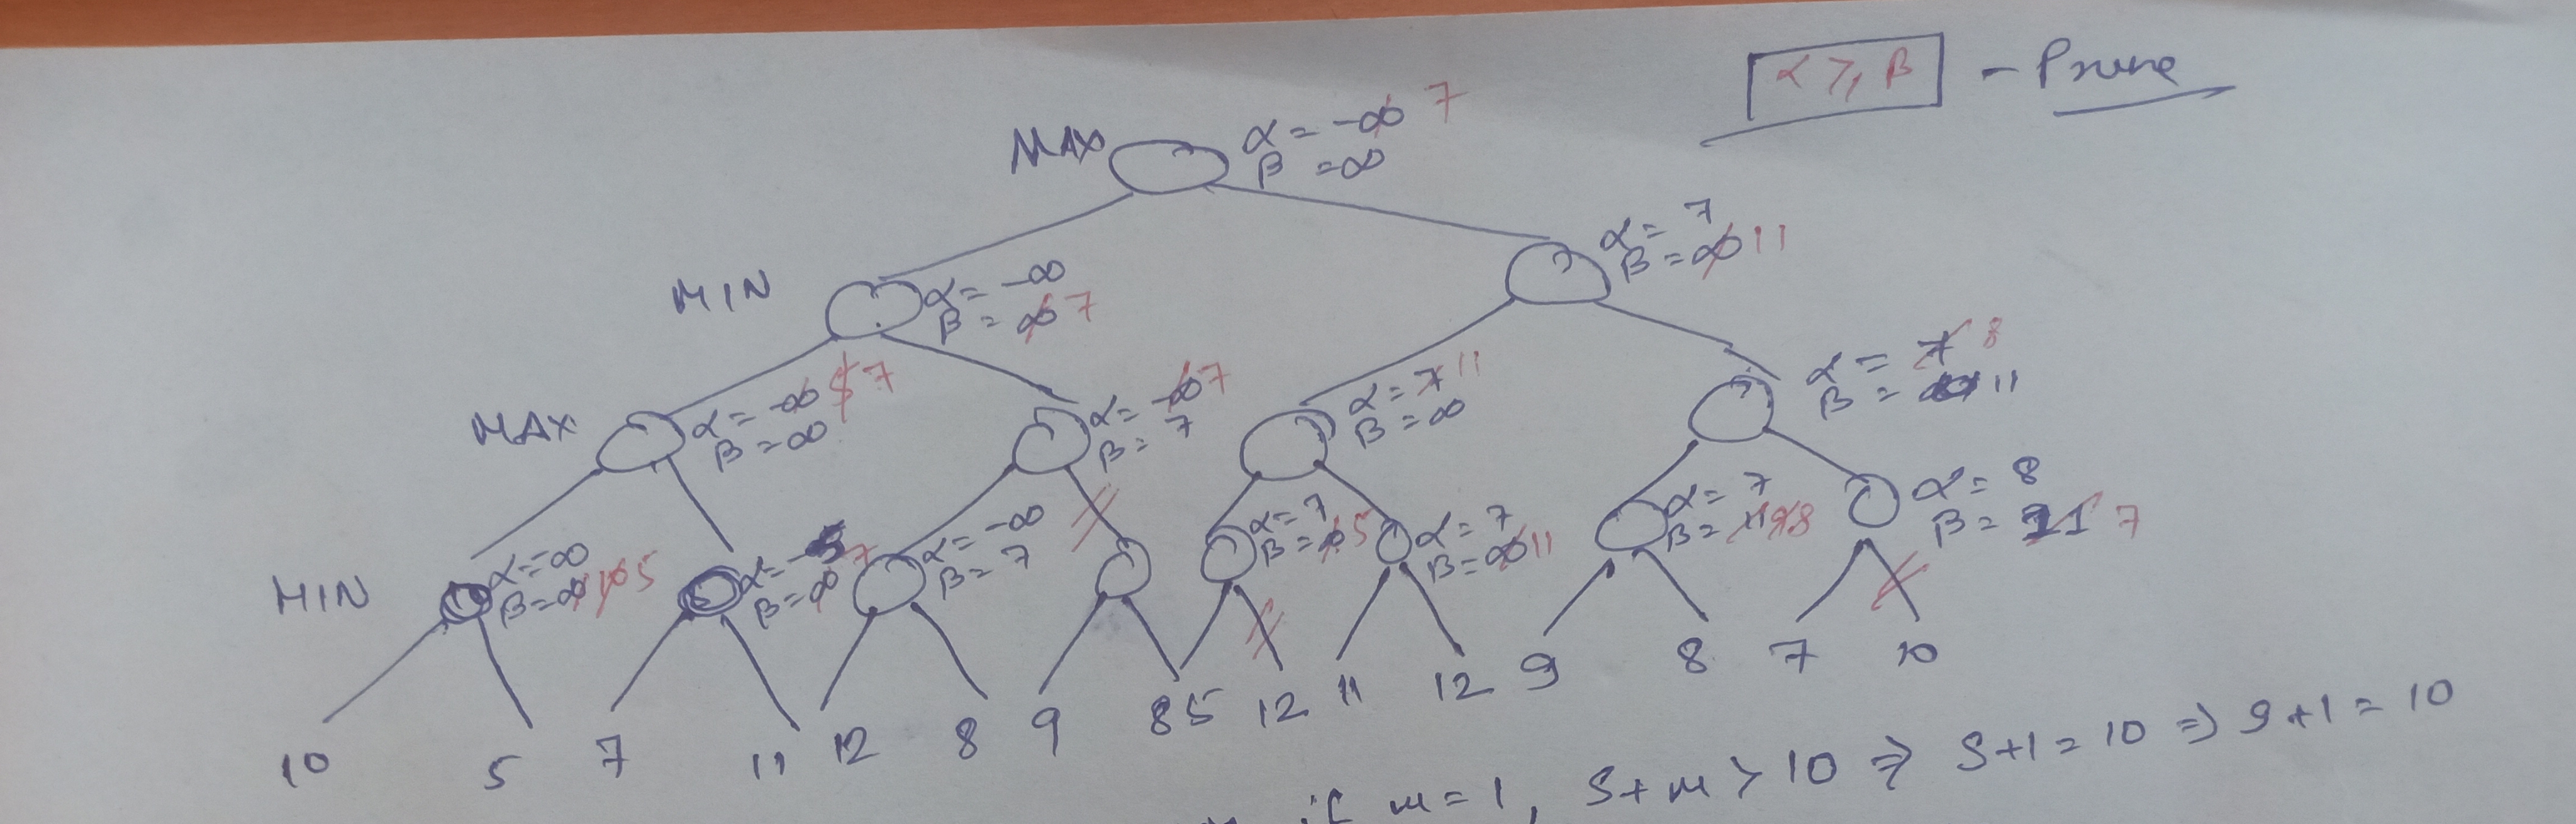 α ≥ β - Prune
MAX α = -∞ 7
β = ∞
α = 7
β = ∞ 11
MIN α = -∞
β = ∞ 7
α = 7 8
β = 11
MAX α = -∞ 5 7
β = ∞
α = -∞ 7
β = 7
α = 7 11
β = ∞
MIN α = ∞
β = ∞ 10 5
β = ∞ 7
α = -∞
β = 7
α = 7
β = ∞ 5
α = 7
β = ∞ 11
α = 7
β = 11 9 8
α = 8
β = 11 7
10 5 7 11 12 8 9 8 5 12 11 12 9 8 7 10
if m = 1, S + m > 10 ⇒ S + 1 = 10 ⇒ 9 + 1 = 10